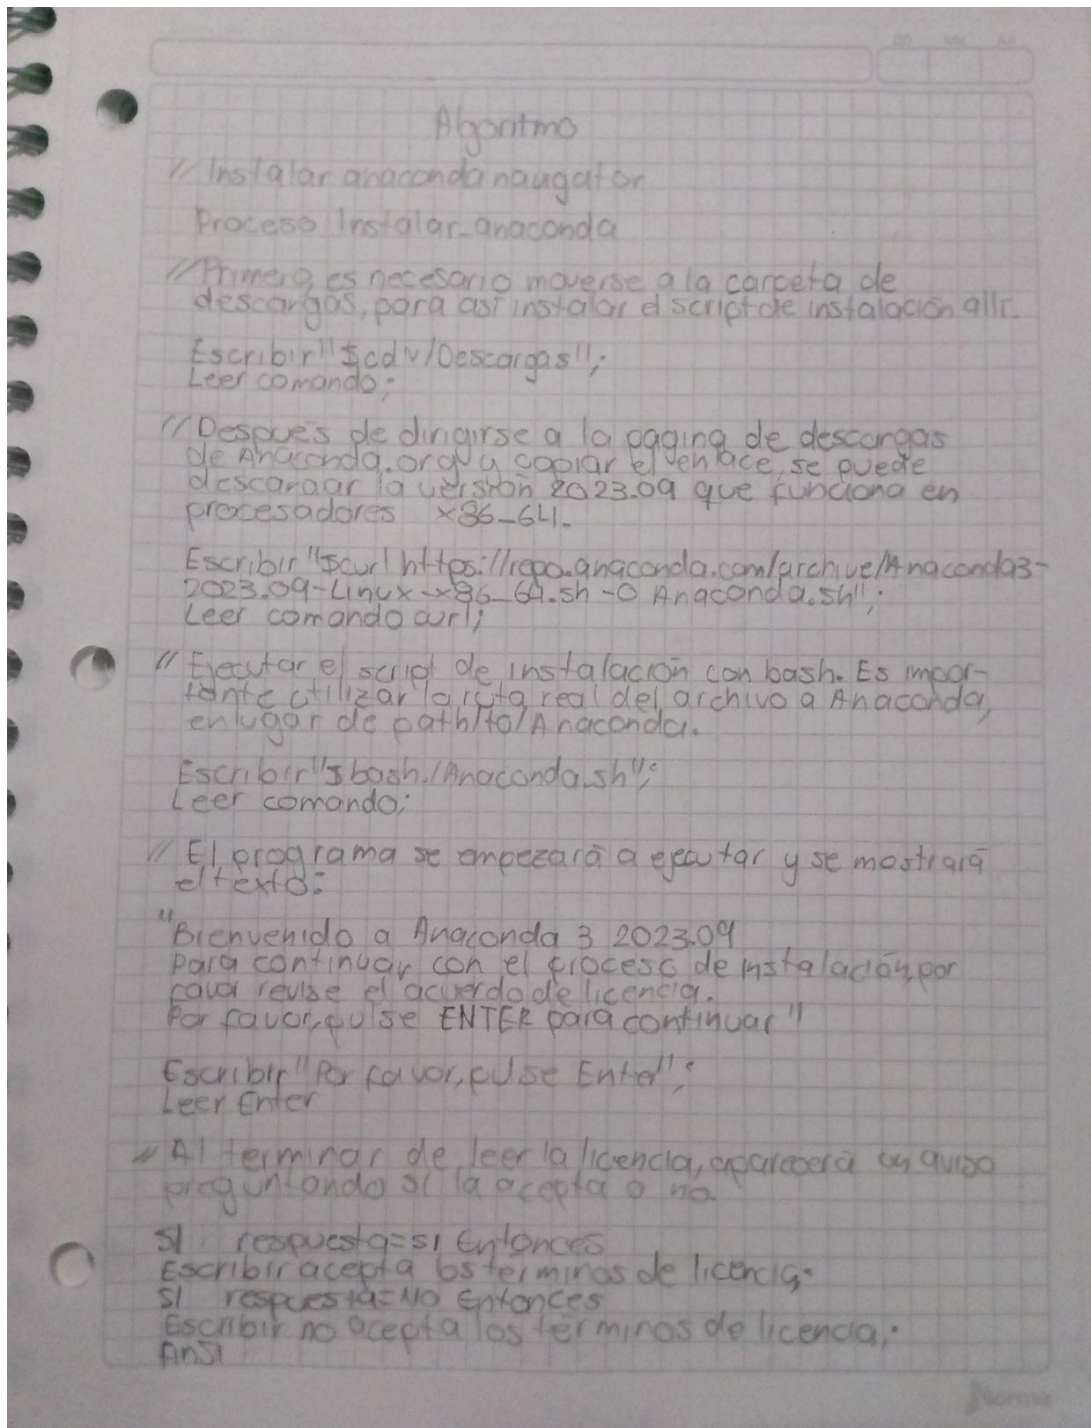 Algoritmo
// Instalar anaconda naugator
Proceso Instalar_anaconda
// Primero, es necesario moverse a la carpeta de
descargas, para así instalar el script de instalación allí.
Escribir "$cd ~/Descargas";
Leer comando;
// Después de dirigirse a la página de descargas
de Anaconda.org y copiar el enlace, se puede
descargar la versión 2023.09 que funciona en
procesadores x86_64.
Escribir "$curl https://repo.anaconda.com/archive/Anaconda3-
2023.09-Linux-x86_64.sh -O Anaconda.sh";
Leer comando curl;
// Ejecutar el script de instalación con bash. Es impor-
tante utilizar la ruta real del archivo a Anaconda,
en lugar de path/to/Anaconda.
Escribir "$bash./Anaconda.sh";
Leer comando;
// El programa se empezará a ejecutar y se mostrará
el texto:
"Bienvenido a Anaconda 3 2023.09
Para continuar con el proceso de instalación, por
favor revise el acuerdo de licencia.
Por favor, pulse ENTER para continuar"
Escribir "Por favor, pulse Enter";
Leer Enter
// Al terminar de leer la licencia, aparecerá un aviso
preguntando si la acepta o no.
SI respuesta=SI Entonces
Escribir acepta los terminos de licencia;
SI respuesta=NO Entonces
Escribir no acepta los términos de licencia;
finSI
Norma